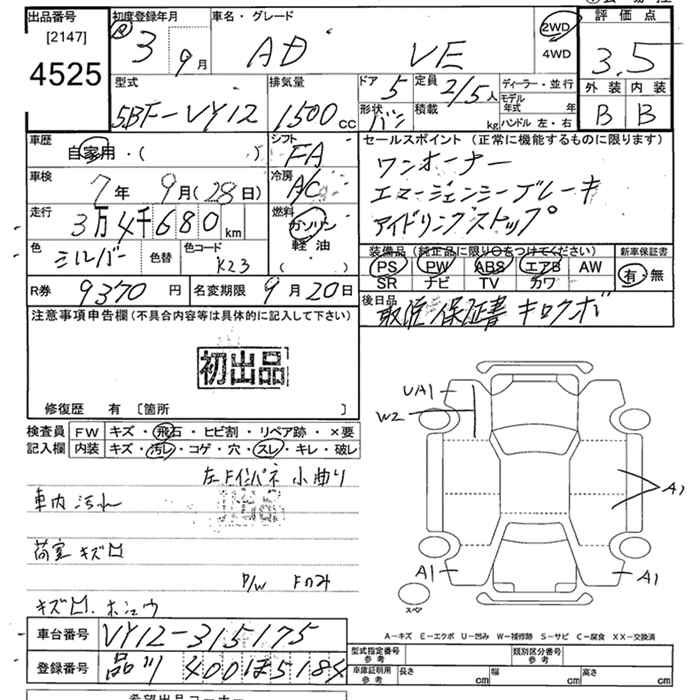 出品番号
[2147]
4525
初度登録年月
R 3 9月
車名・グレード
AD VE
2WD
4WD
評価点
3.5
外装 内装
B B
型式
5BF-VY12
排気量
1500cc
ドア 5
形状 バン
定員 2/5人
積載 kg
ディーラー・並行
モデル年式 年
ハンドル 左・右
車歴
自家用・( )
シフト
FA
車検
7年 9月(28日)
冷房
A/C
走行
3万4千680km
燃料
ガソリン
軽油
( )
色
シルバー
色替
色コード
K23
セールスポイント(正常に機能するものに限ります)
ワンオーナー
エマージェンシーブレーキ
アイドリングストップ
装備品(純正品に限り○をつけてください)
PS PW ABS エアB AW
SR ナビ TV カワ
新車保証書
有・無
R券
9370円
名変期限
9月20日
後日品
取説 保証書 キロクボ
注意事項申告欄(不具合内容等は具体的に記入して下さい)
初出品
修復歴 有 [箇所 ]
検査員記入欄
FW キズ・飛石・ヒビ割・リペア跡・×要
内装 キズ・汚レ・コゲ・穴・スレ・キレ・破レ
左Fインパネ 小曲り
車内 汚れ
荷室 キズ凹
P/W Fのみ
キズ凹、ホシュウ
UA1
W2
A1
A1
A1
スペア
A-キズ E-エクボ U-凹み W-補修跡 S-サビ C-腐食 XX-交換済
車台番号
VY12-315175
登録番号
品川 400 ほ 5184
型式指定番号
参考
類別区分番号
参考
車庫証明用
参考
長さ
幅
高さ
希望出品コーナー